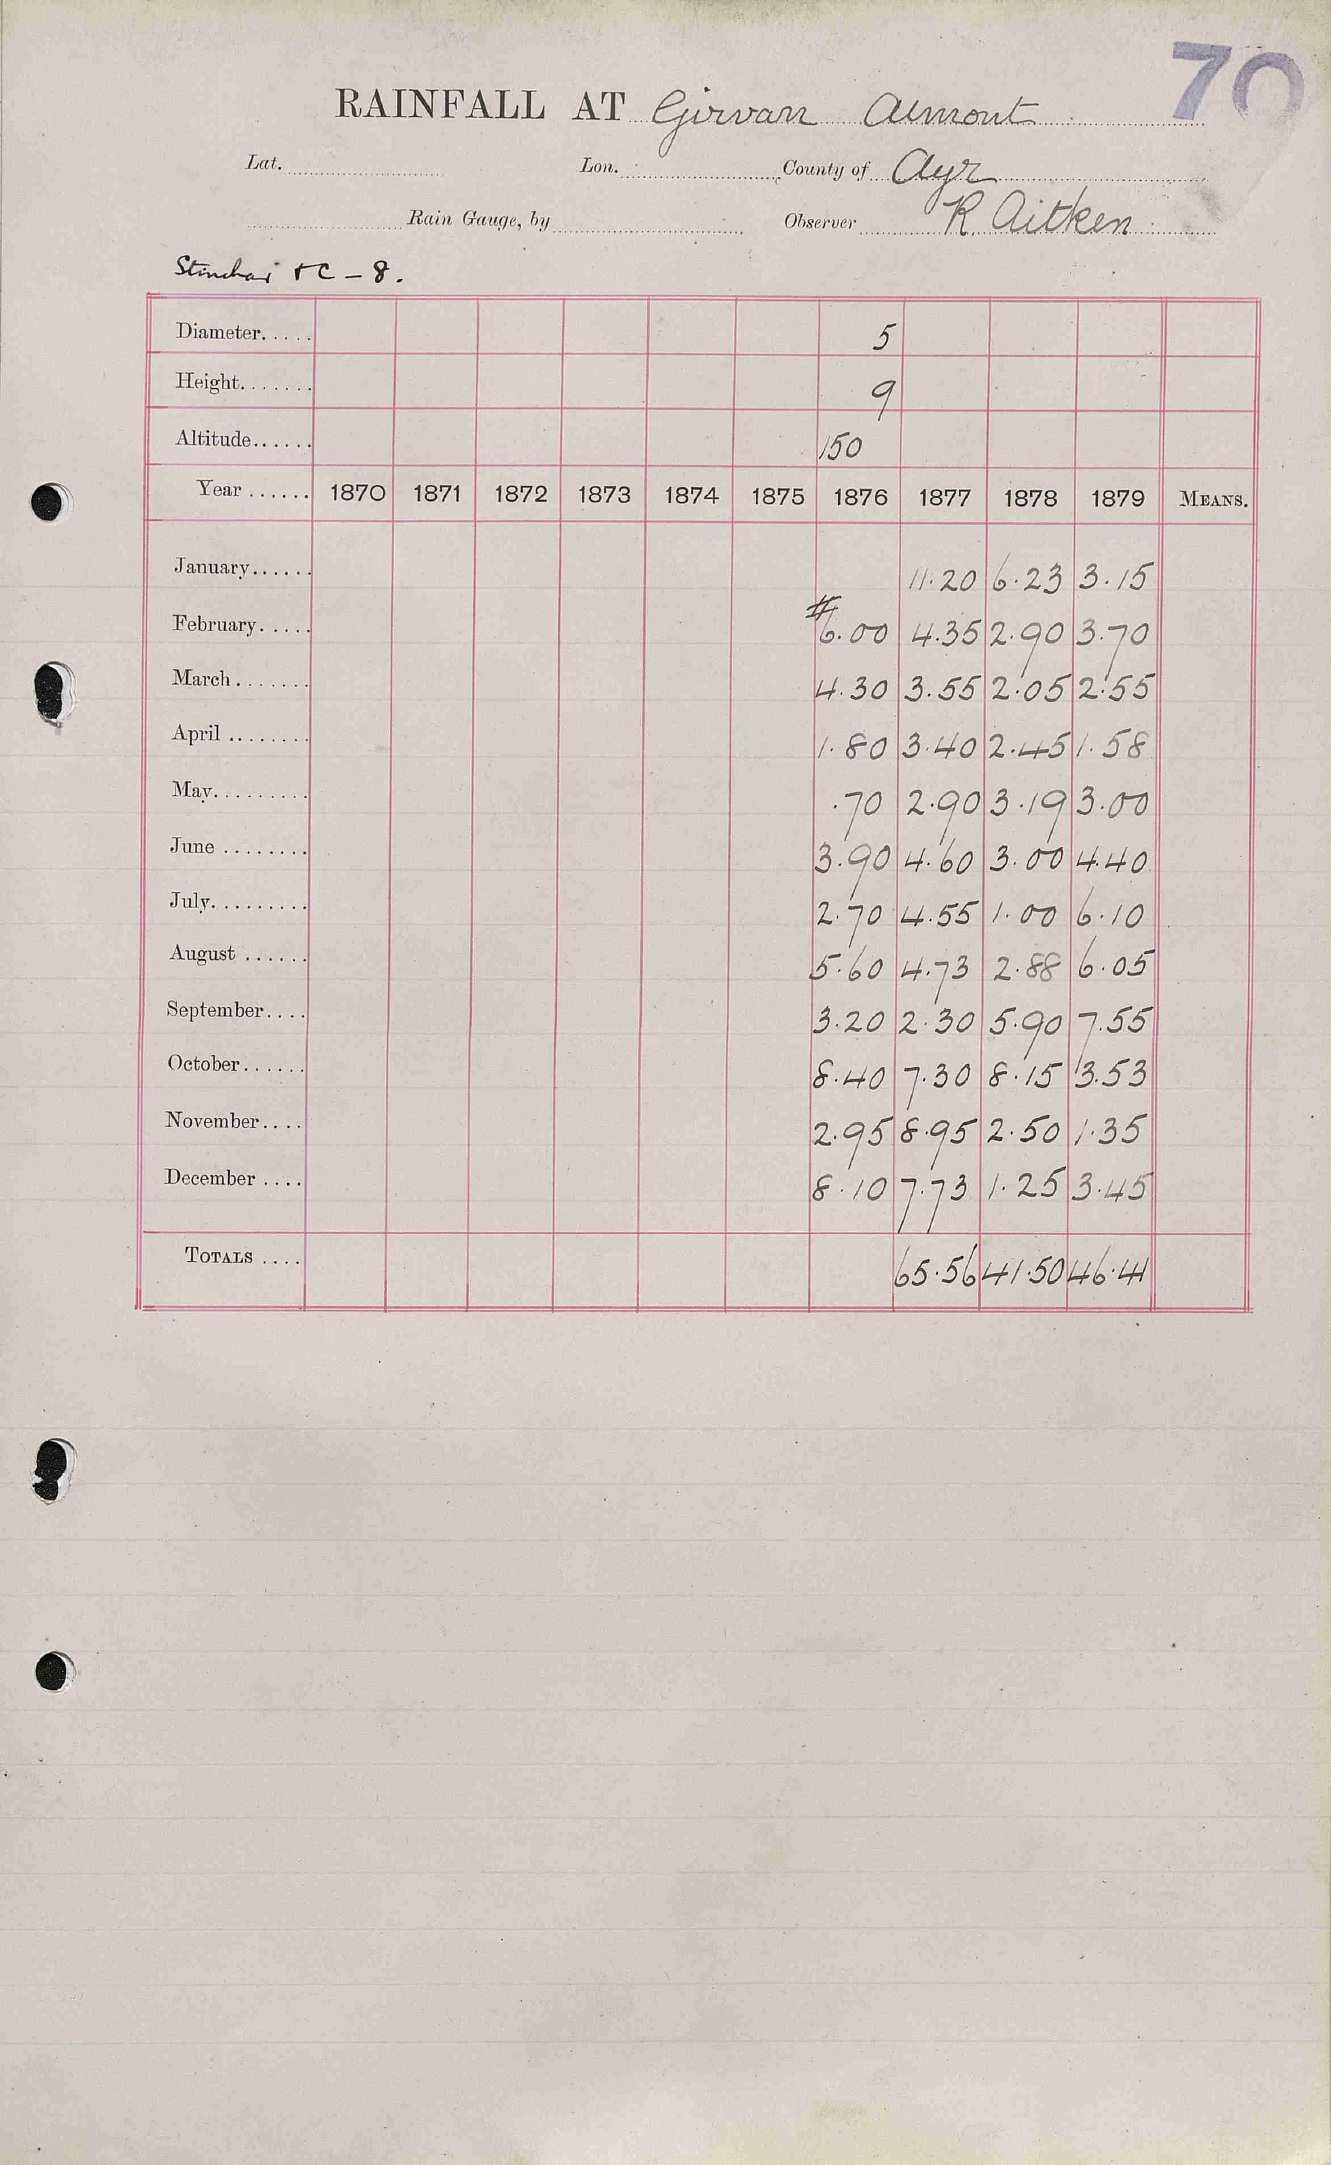 70
RAINFALL AT Girvan Almont
Lat. Lon. County of Ayr
Rain Gauge, by Observer R. Aitken
Stinchar & C – 8.
Diameter..... 5
Height....... 9
Altitude...... 150
Year ...... 1870 1871 1872 1873 1874 1875 1876 1877 1878 1879 MEANS.
January...... 11.20 6.23 3.15
#
February..... 6.00 4.35 2.90 3.70
March....... 4.30 3.55 2.05 2.55
April ........ 1.80 3.40 2.45 1.58
May......... .70 2.90 3.19 3.00
June ........ 3.90 4.60 3.00 4.40
July......... 2.70 4.55 1.00 6.10
August ...... 5.60 4.73 2.88 6.05
September.... 3.20 2.30 5.90 7.55
October...... 8.40 7.30 8.15 3.53
November.... 2.95 8.95 2.50 1.35
December .... 8.10 7.73 1.25 3.45
TOTALS .... 65.56 41.50 46.41